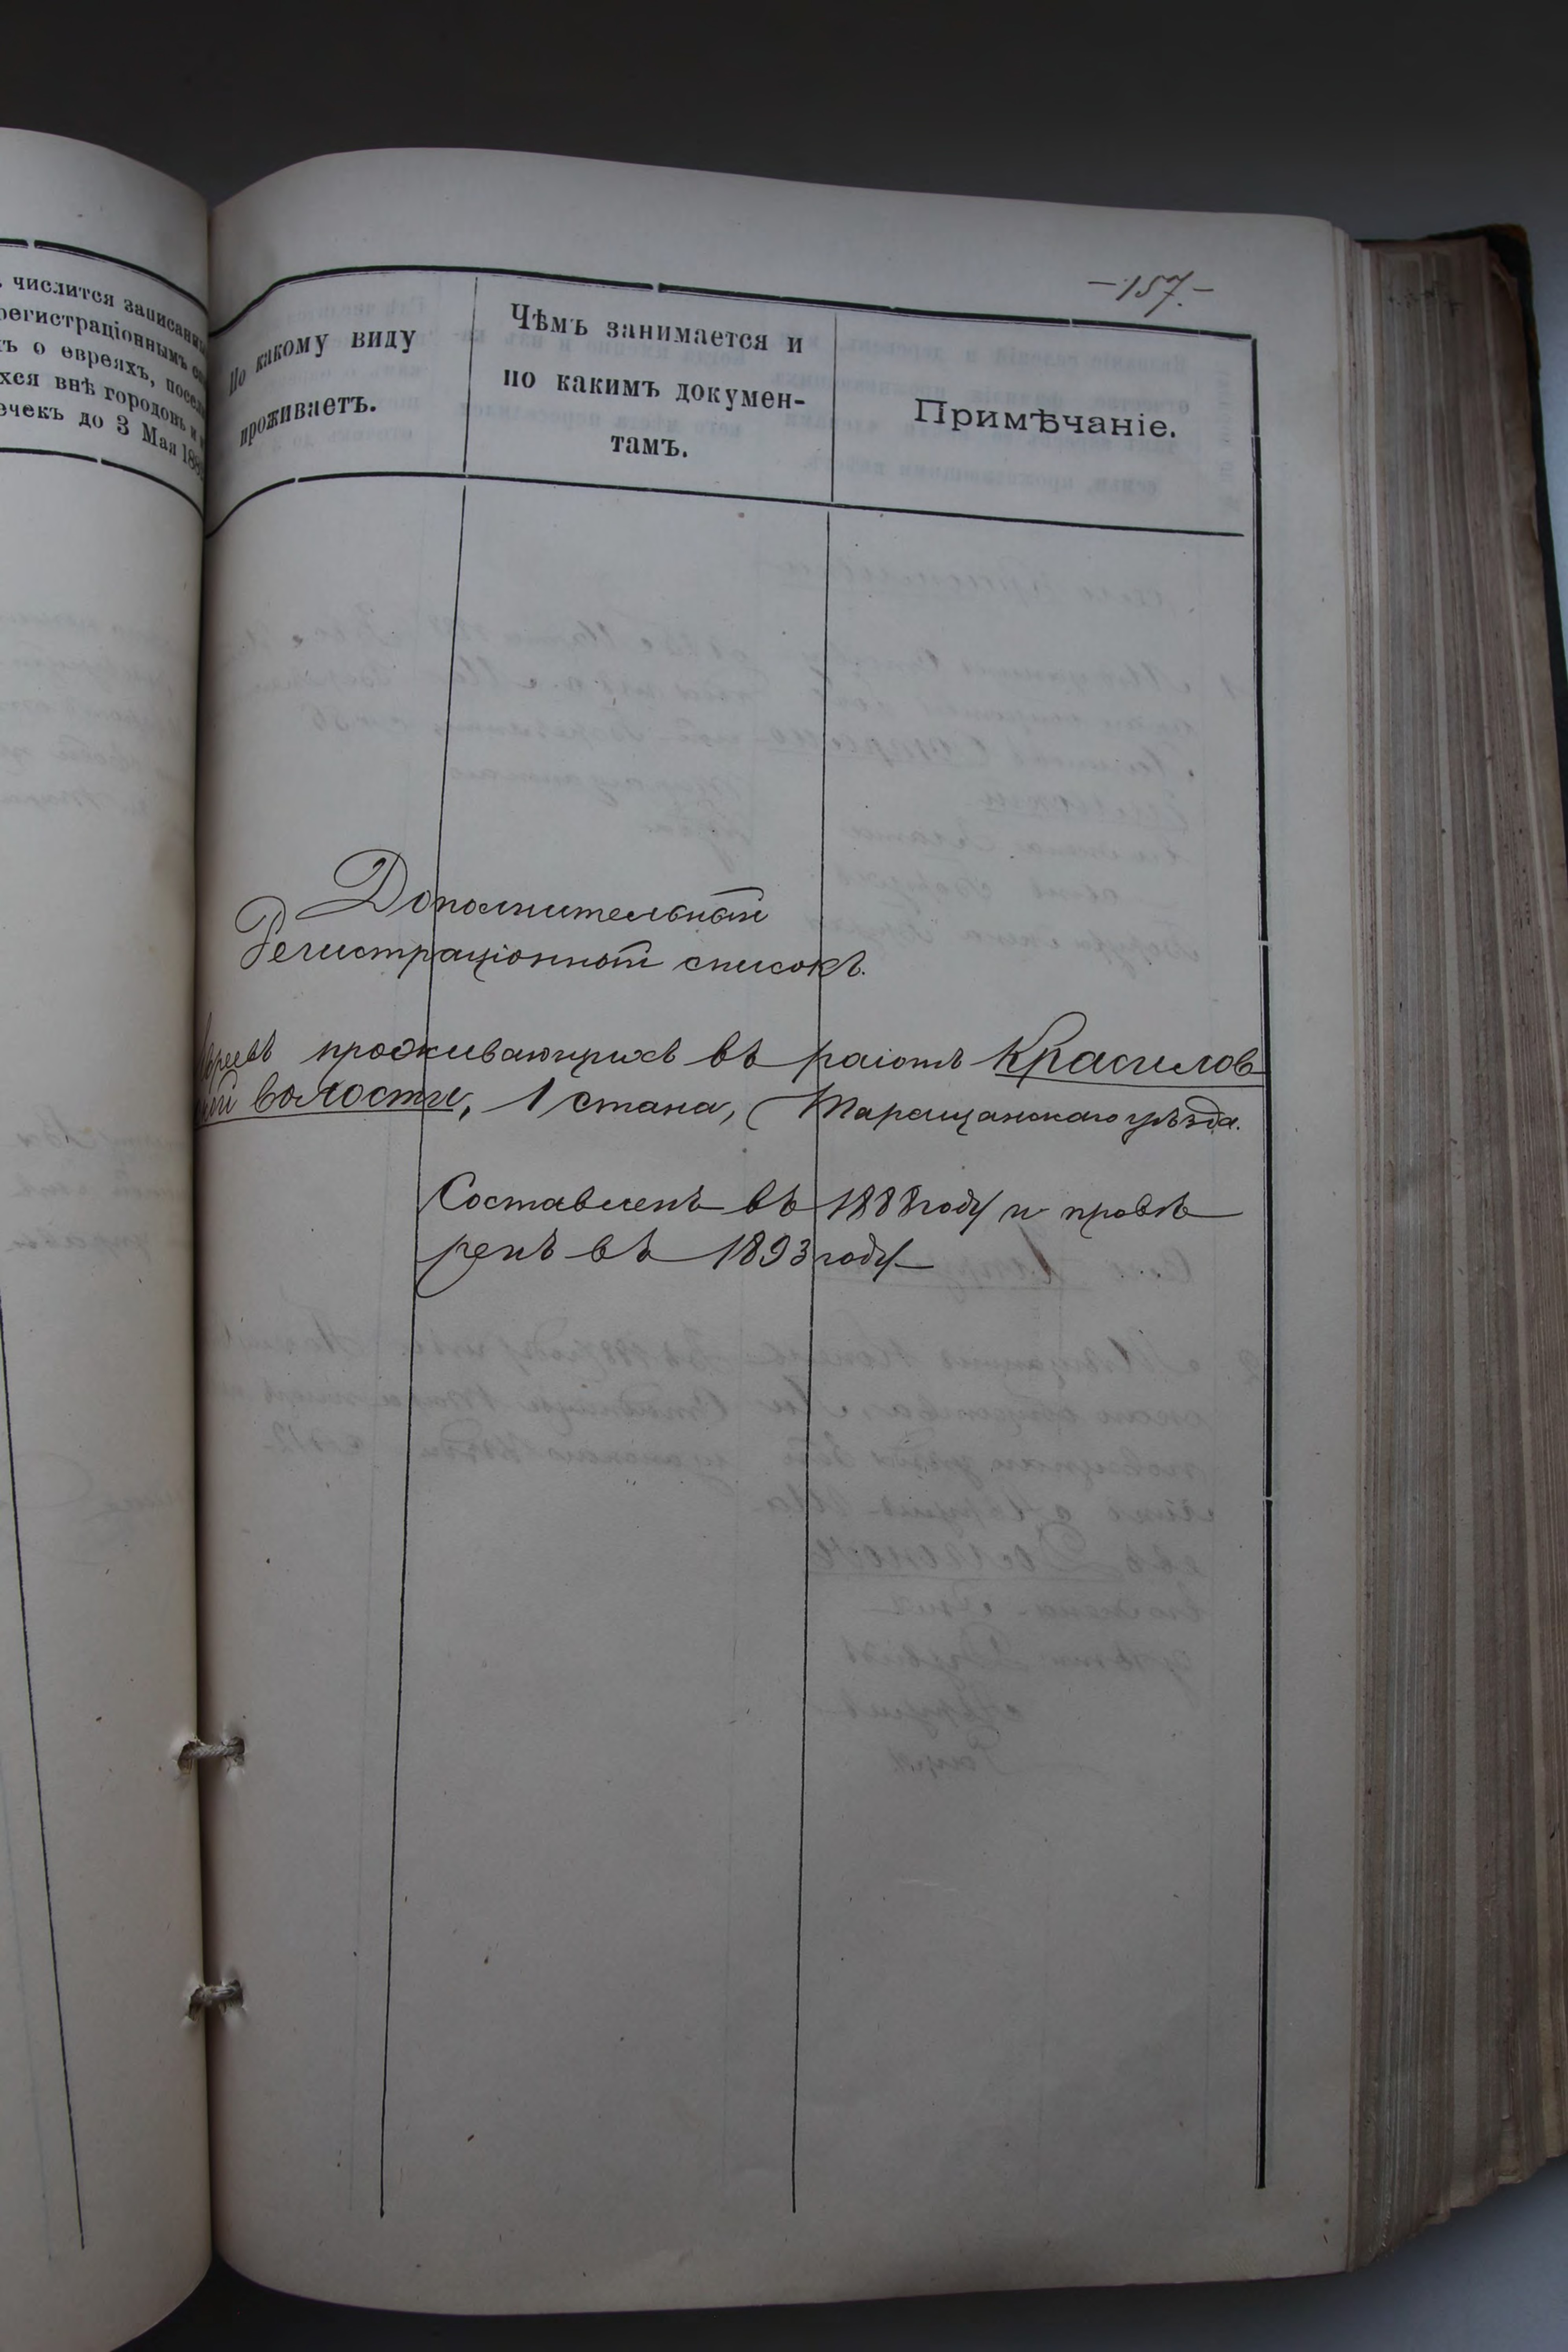 числится записанн
регистраціоннымъ сп
ъ о евреяхъ, посел
хся внѣ городовъ и м
ечекъ до 3 Мая 188
—157.—
По какому виду
проживаетъ.
Чѣмъ занимается и
по какимъ докумен-
тамъ.
Примѣчаніе.
Дополнительный
Регистраціонный списокъ.
Евреевъ проживающихъ въ раіонѣ Красилов
ской волости, 1 стана, Таращанскаго уѣзда.
Составленъ въ 1888 году и провѣ
ренъ въ 1893 году